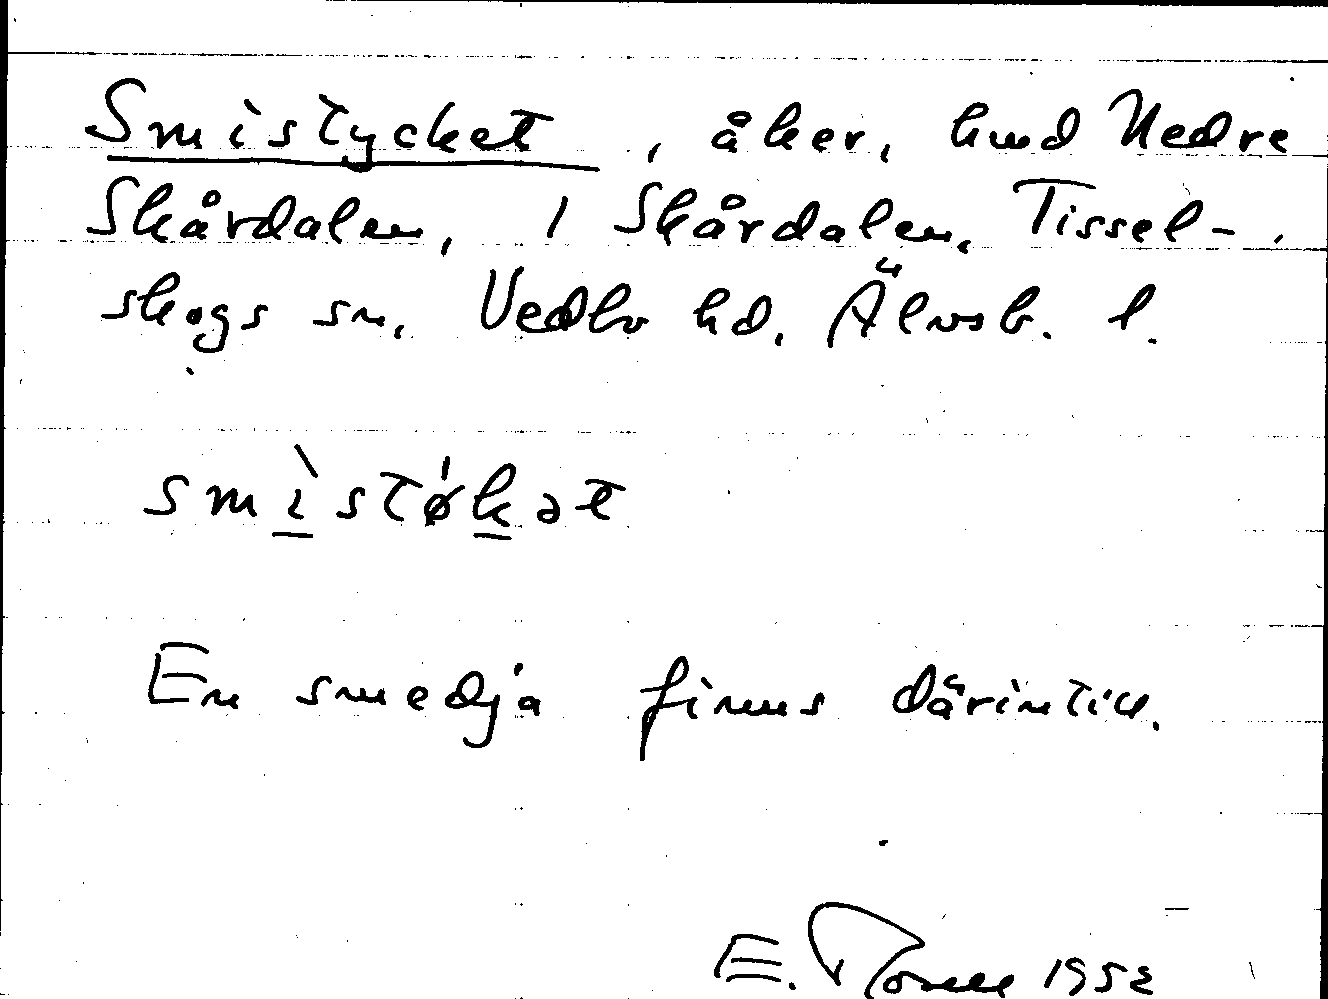 Smistycket, åker, hmd Nedre
Skårdalen, 1 Skårdalen, Tissel-
skogs sn, Vedbo hd, Älvsb. l.
smìstǿkət
En smedja finns därintill.
E. 1952